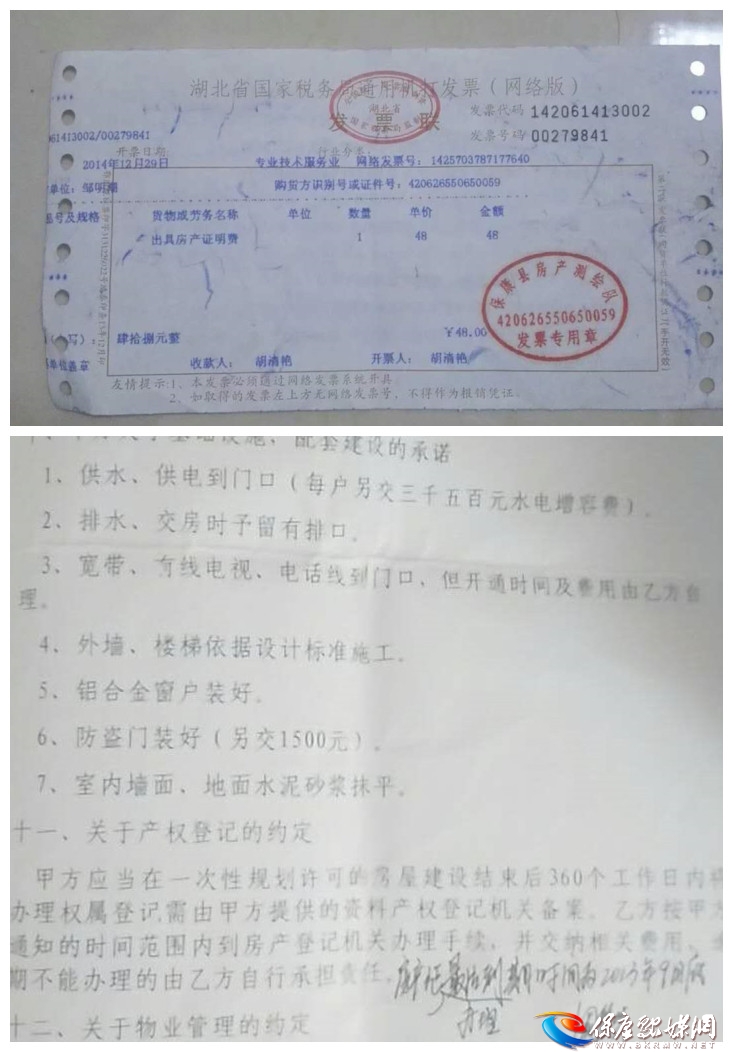 湖北省国家税务局通用机打发票（网络版）
湖北省
发票联
发票代码 142061413002
发票号码 00279841
61413002/00279841
开票日期
行业分类
2014年12月29日 专业技术服务业 网络发票号：1425703787177640
单位： 购货方识别号或证件号：420626550650059
号及规格 货物或劳务名称 单位 数量 单价 金额
出具房产证明费 1 48 48
保康县房产测绘队
420626550650059
发票专用章
写）： 肆拾捌元整 ￥48.00
单位盖章 收款人： 胡清艳 开票人： 胡清艳
友情提示：1、本发票必须通过网络发票系统开具
2、如取得的发票左上方无网络发票号，不得作为报销凭证。
基础设施、配套建设的承诺
1、供水、供电到门口（每户另交三千五百元水电增容费）。
2、排水、交房时予留有排口。
3、宽带、有线电视、电话线到门口，但开通时间及费用由乙方自
理。
4、外墙、楼梯依据设计标准施工。
5、铝合金窗户装好。
6、防盗门装好（另交1500元）。
7、室内墙面、地面水泥砂浆抹平。
十一、关于产权登记的约定
甲方应当在一次性规划许可的房屋建设结束后360个工作日内将
办理权属登记需由甲方提供的资料产权登记机关备案。乙方按甲方
通知的时间范围内到房产登记机关办理手续，并交纳相关费用，
期不能办理的由乙方自行承担责任。
期时间为2013年9月底
办理
十二、关于物业管理的约定
保康熙媒网
www.bkrmw.net